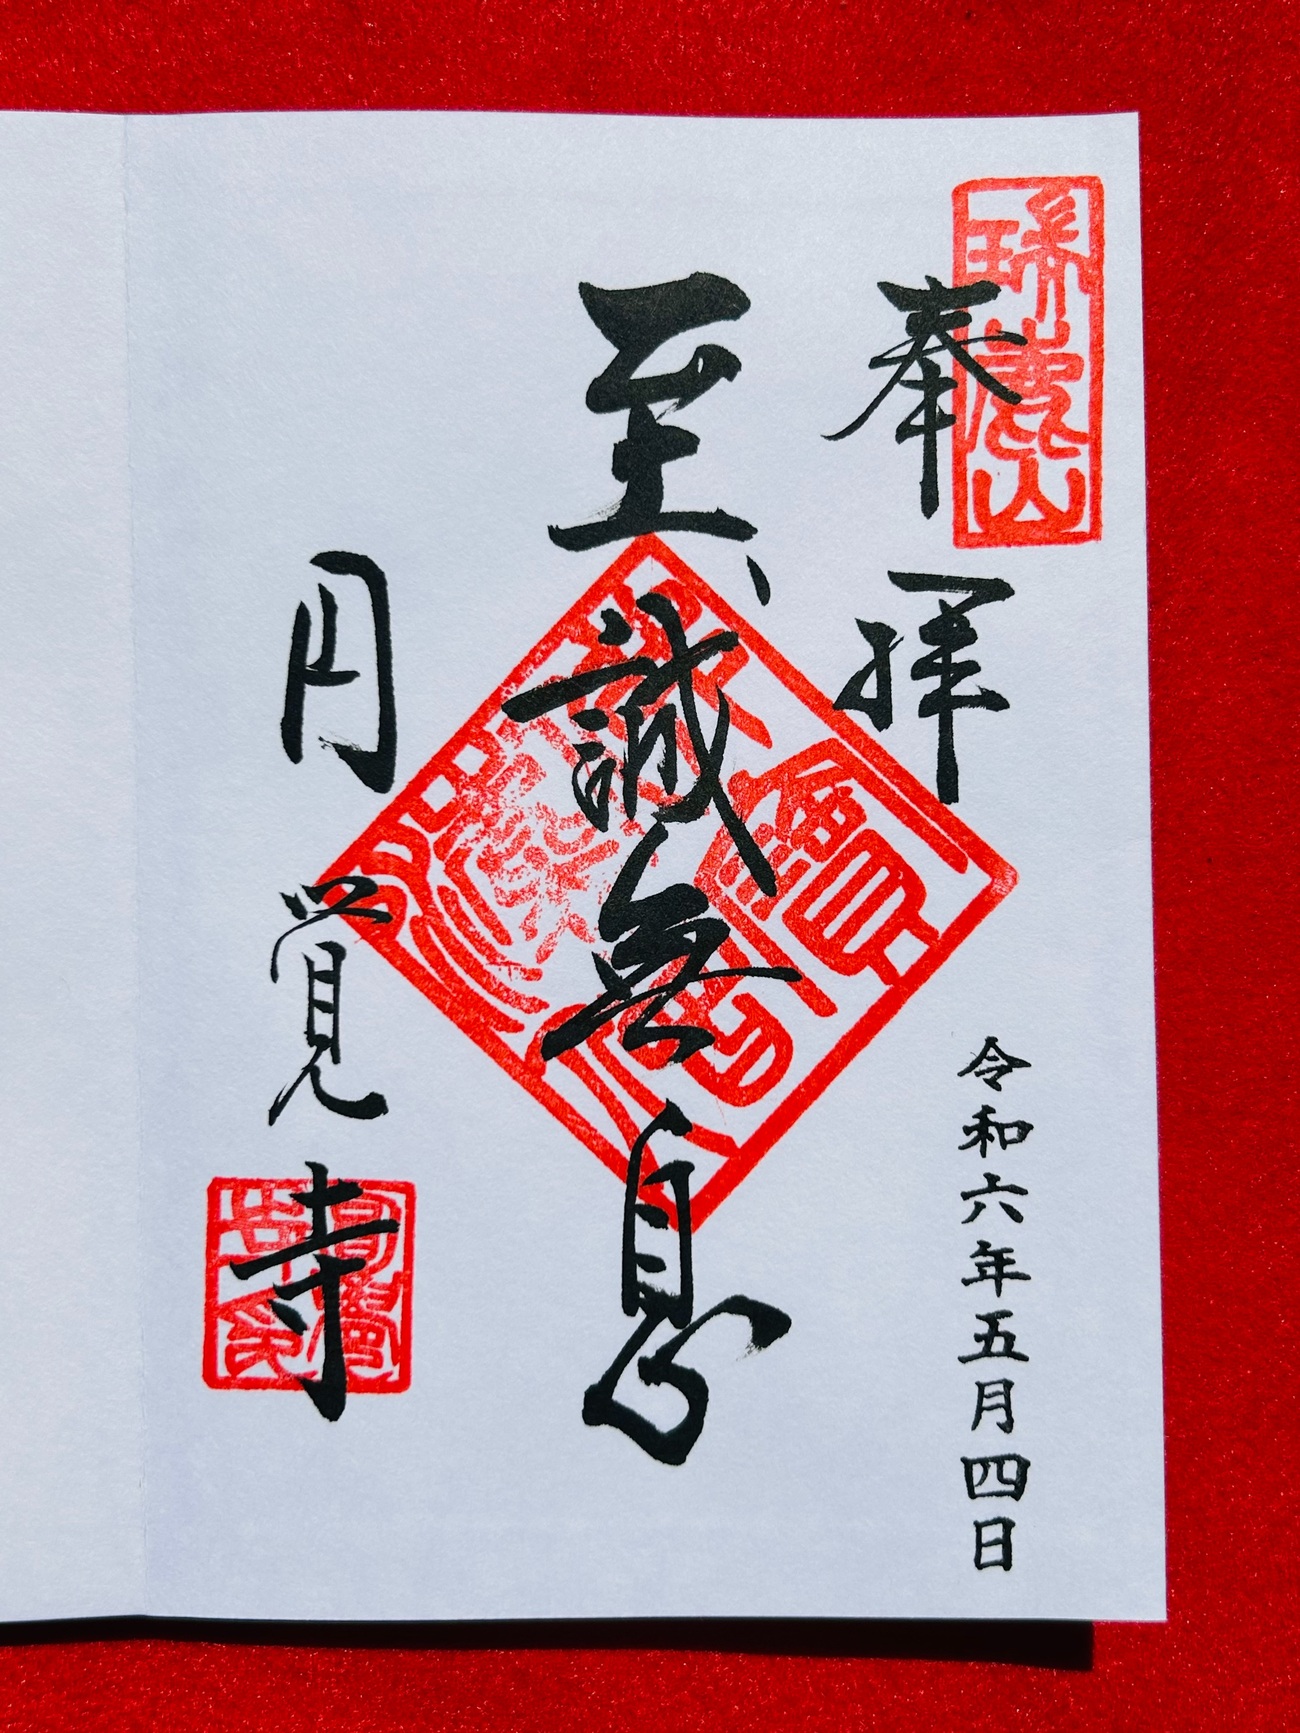 奉拝
令和六年五月四日
瑞鹿山
至誠無息
円覚寺